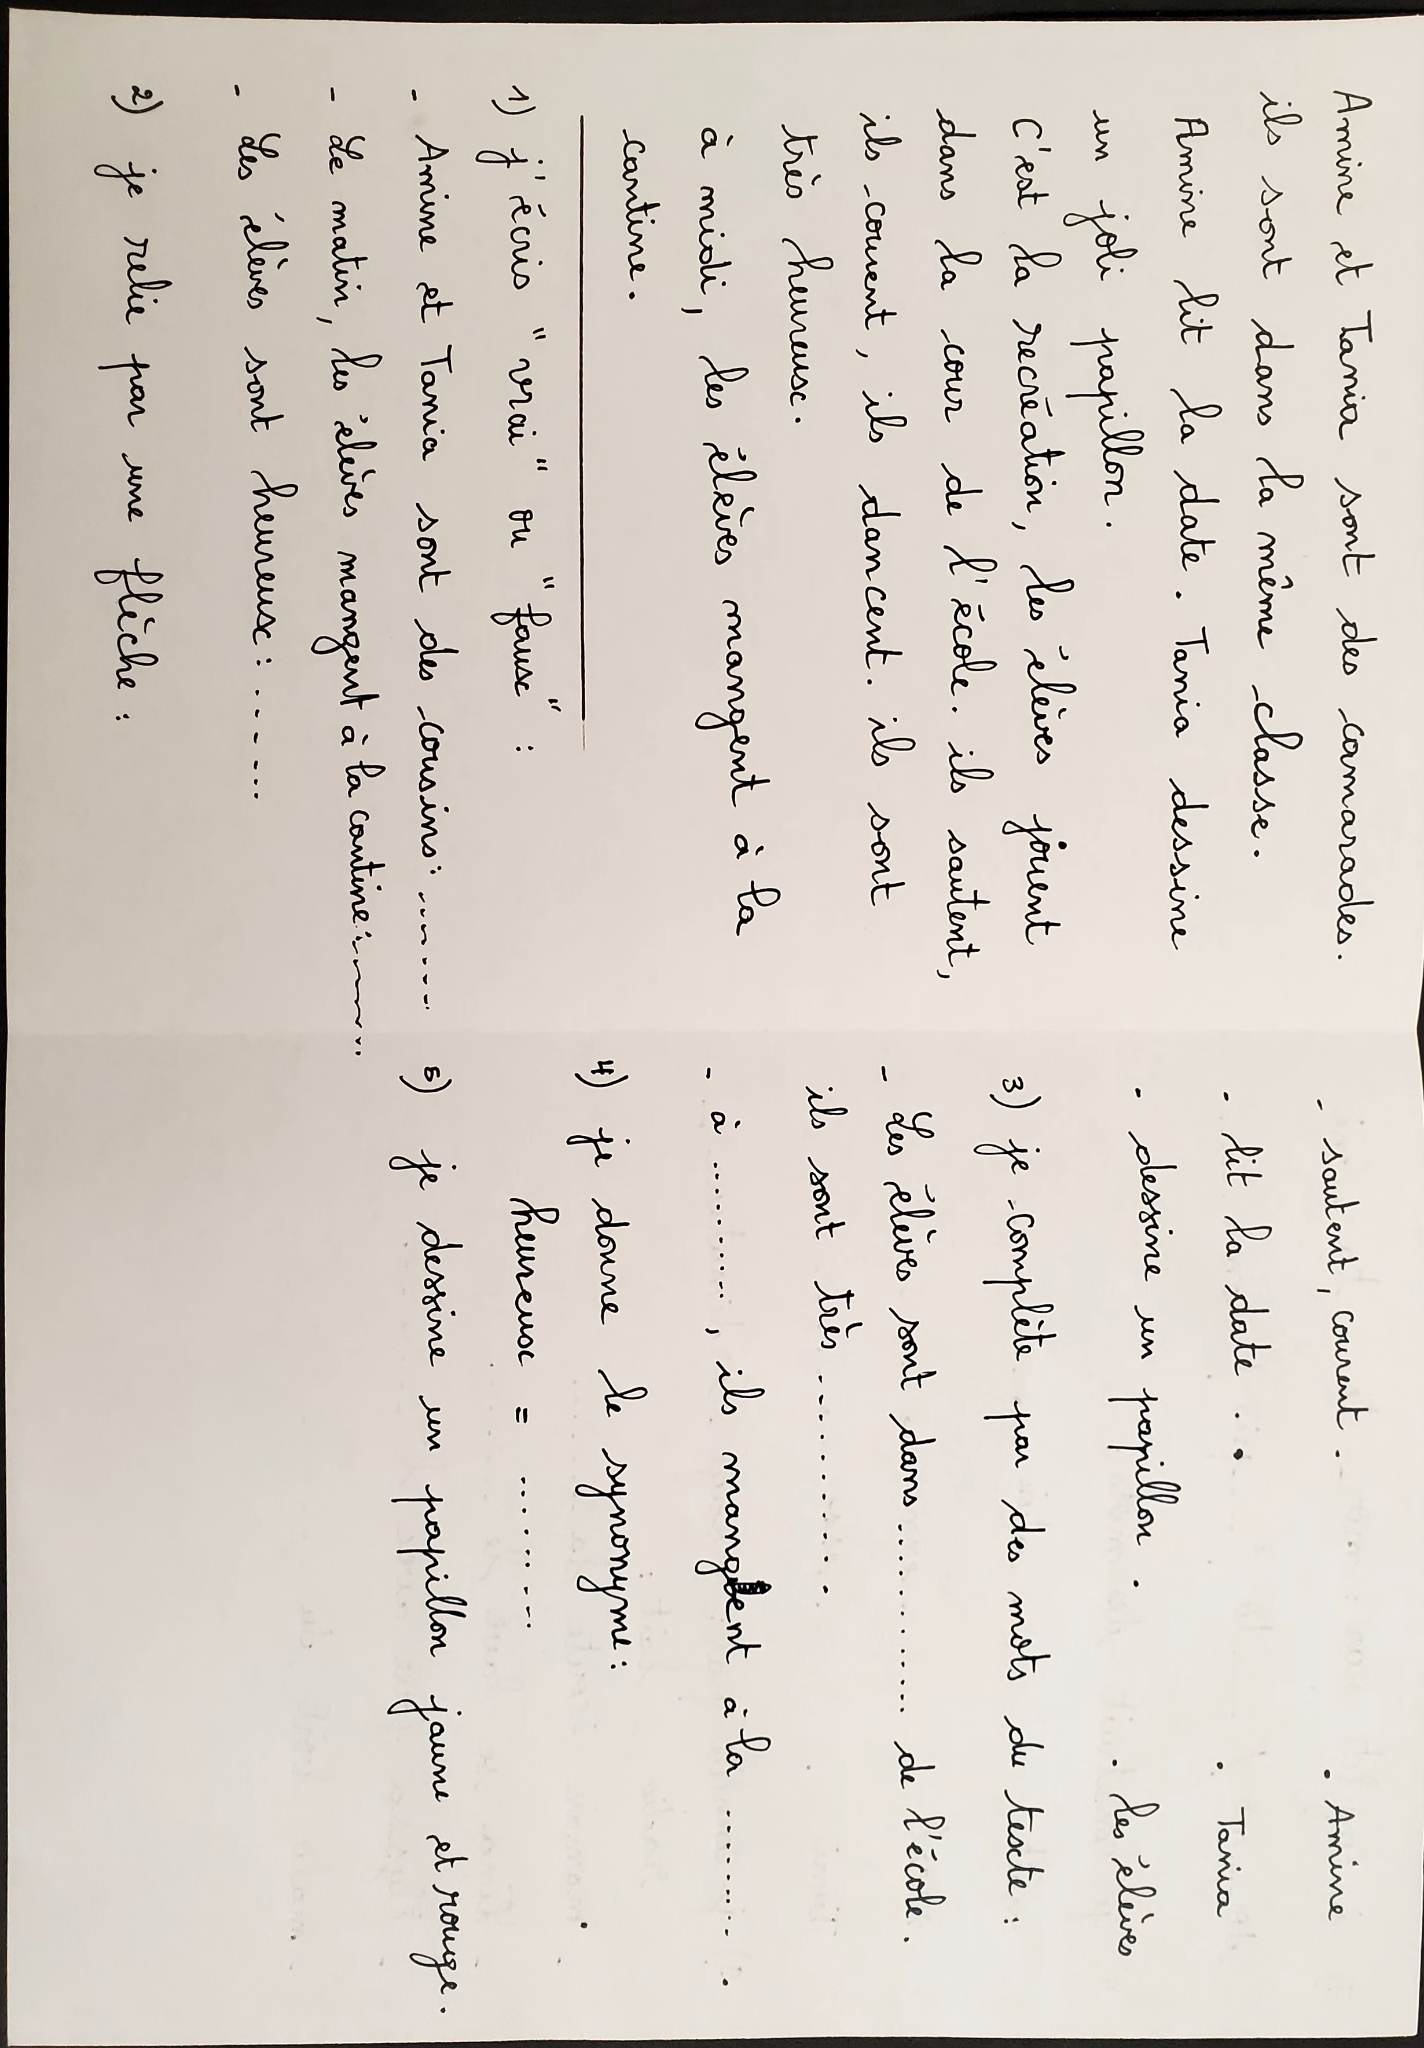 Amine et Tania sont des camarades.
ils sont dans la même classe.
Amine lit la date. Tania dessine
un joli papillon.
C'est la recréation, les élèves jouent
dans la cour de l'école. ils sautent,
ils courent, ils dancent. ils sont
très heureux.
à midi, les élèves mangent à la
cantine.
1) j'écris "vrai" ou "faux" :
- Amine et Tania sont des cousins: .......
- Le matin, les élèves mangent à la cantine: .......
- Les élèves sont heureux: ......
2) je relie par une flèche :
- sautent, courent . . Amine
. lit la date . . . Tania
. dessine un papillon . . les élèves
3) je complète par des mots du texte :
- Les élèves sont dans ............ de l'école.
ils sont très ............
- à ........., ils mangent à la ......... .
4) je donne le synonyme:
heureux = ........
5) je dessine un papillon jaune et rouge.